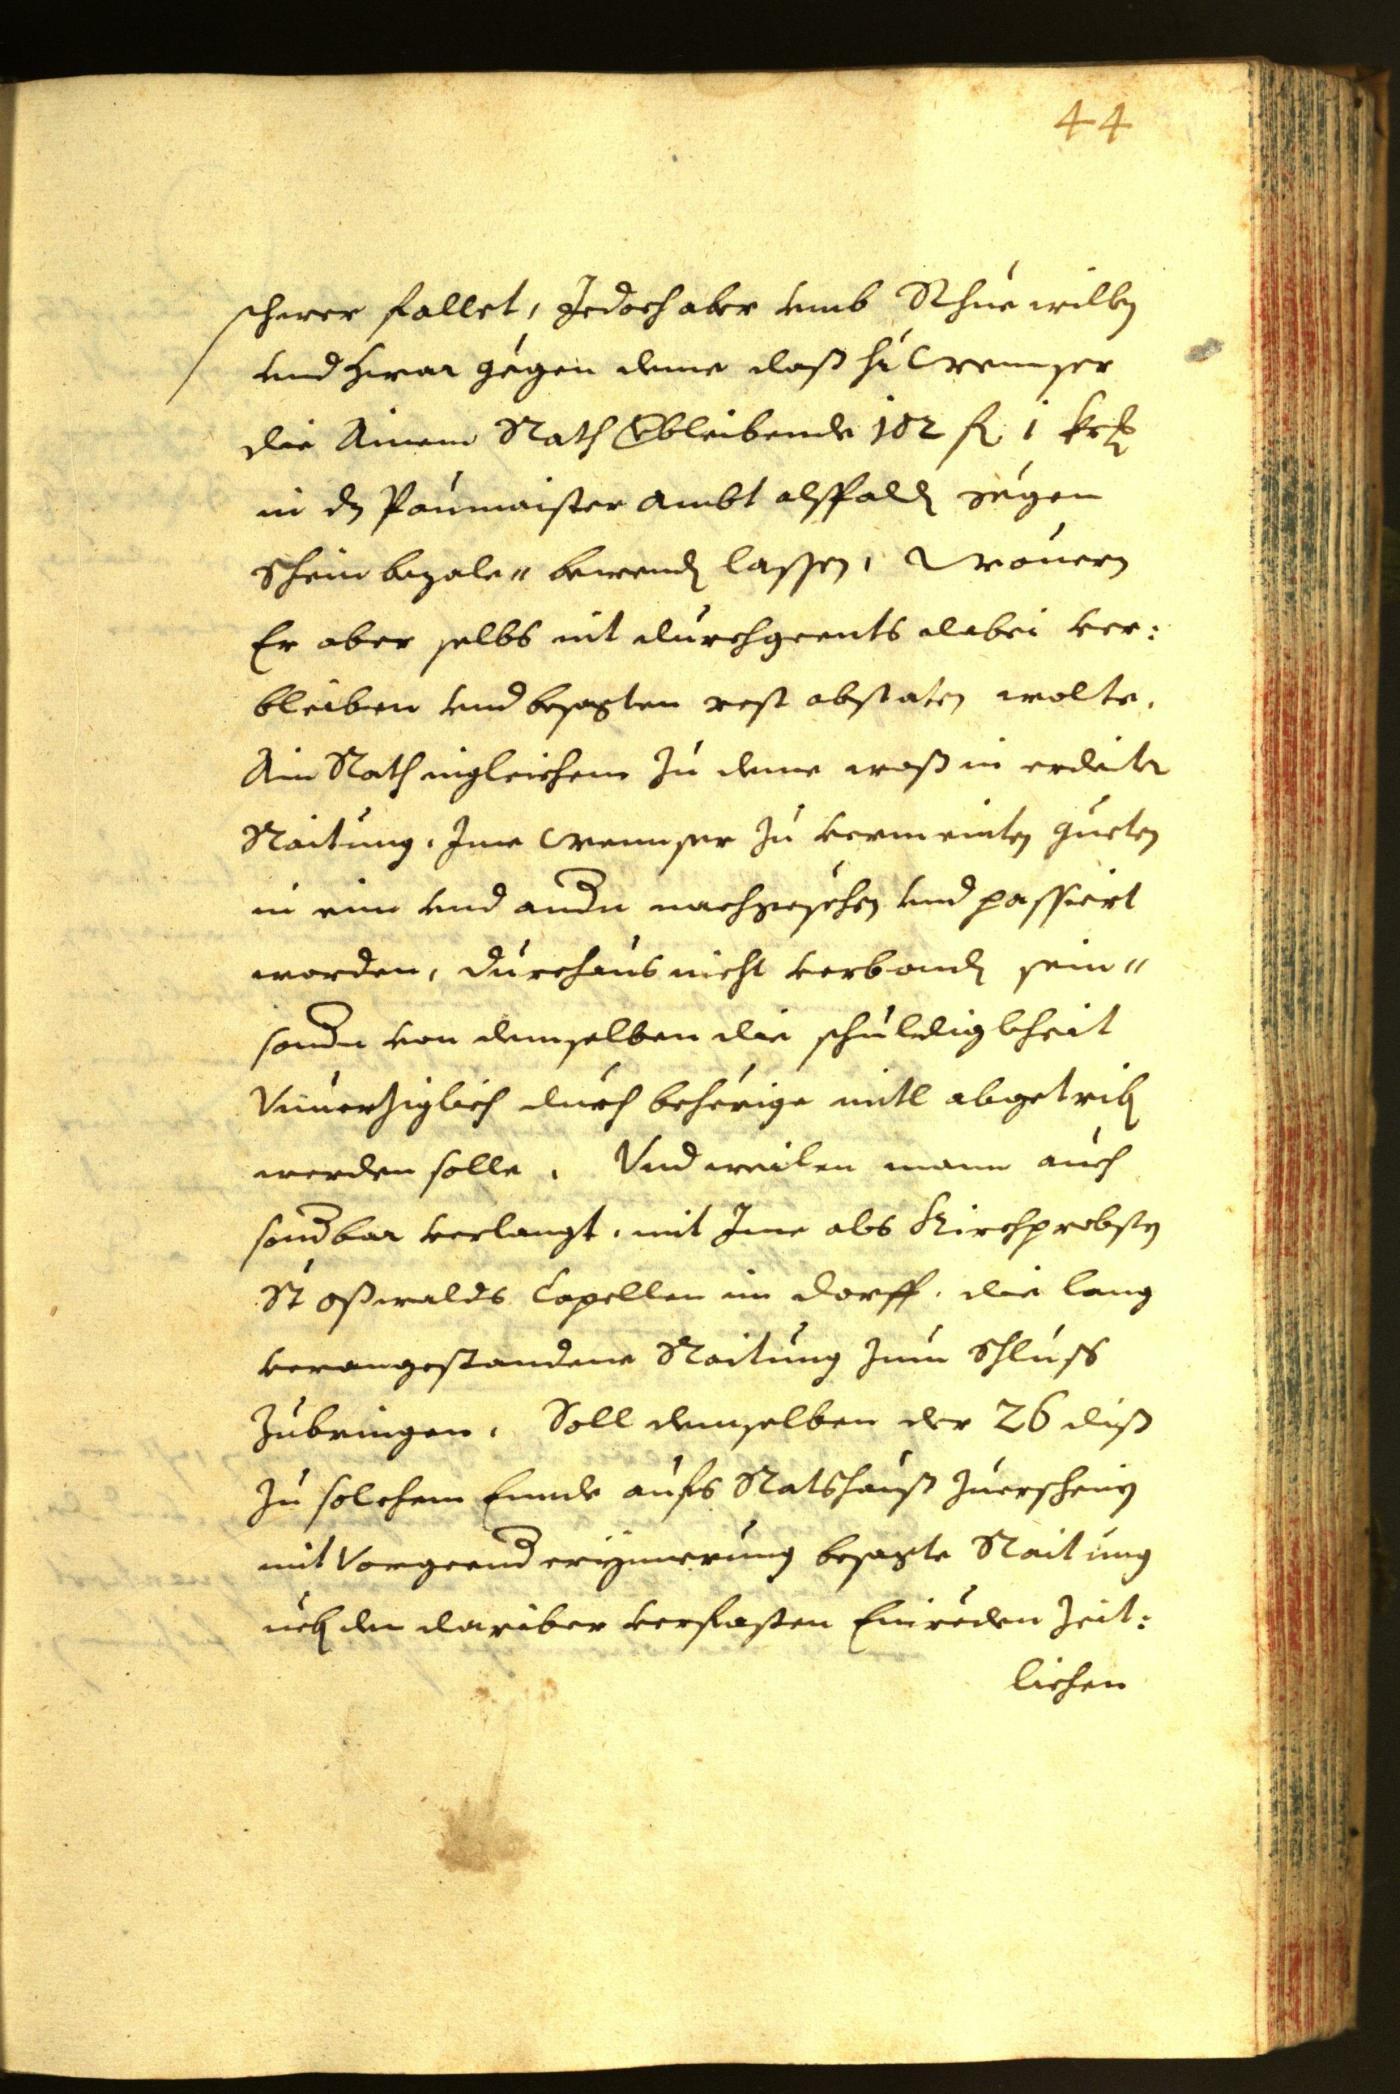 44
schwer fallet, Jedoch aber umb Rhue willen
und zwar gegen deme daß h: Cremser
die Ainem Rath verbleibende 182 fl 1 kr
in das Paumaister Ambt alßpald gegen
Schein bezale" bewenden lassen, Wouern
Er aber selbs nit durchgeents dabei ver:
bleiben und besagten rest abstaten wolte,
Ain Rath ingleichem zu deme waß in erdeiter
Raitung, Jme Cremser zu vermeinten gueten
in ein und andern nachgesehen und passiert
worden, durchaus nicht verbonden sein"
sondern von demselben die schuldigkheit
Vnuerziglich durch behörige mitl abgetriben
werden solle. Und weilen mann auch
sonderbar verlangt, mit Jme als Kirchprobsten
St Oßwalds Capellen im Dorff, die lang
verangestandene Raitung zum Schluss
zubringen, Soll demselben der 26 diß
zu solchem Ennde aufs Ratshauß zuerscheinen
mit Vorgeender erynnerung besagte Raitung
neben den dariber verfasten Einreden zeit:
lichen